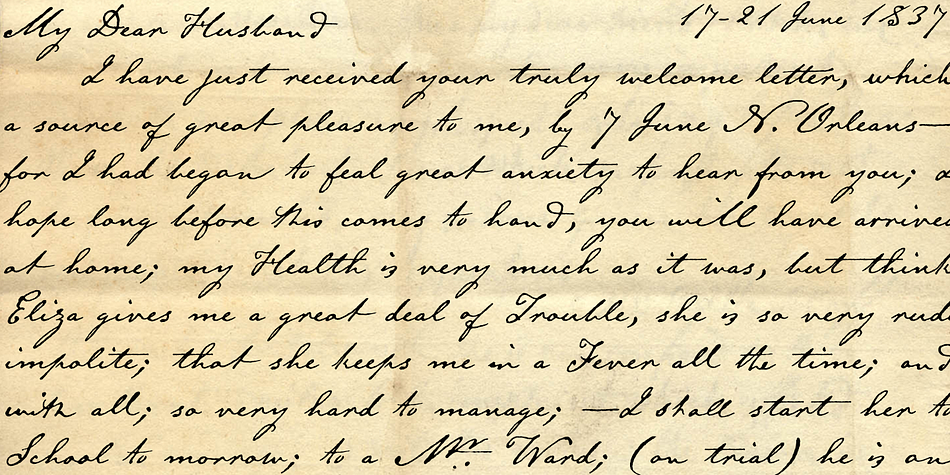 My Dear Husband 17-21 June 1837
I have just received your truly welcome letter, which
a source of great pleasure to me, by 7 June N. Orleans—
for I had began to feal great anxiety to hear from you; I
hope long before this comes to hand, you will have arrived
at home; my Health is very much as it was, but think
Eliza gives me a great deal of Trouble, she is so very rude
impolite; that she keeps me in a Fever all the time; and
with all; so very hard to manage; —I shall start her to
School to morrow; to a Mr. Ward; (on trial) he is an